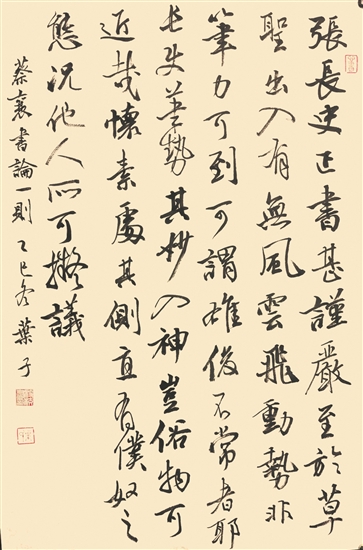 張長史正書甚謹嚴至於草
聖出入有無風雲飛動勢非
筆力可到可謂雄俊不常者耶
長史筆勢其妙入神豈俗物可
近哉懷素處其側直有僕奴之
態況他人所可擬議
蔡襄書論一則 乙巳冬 葉子